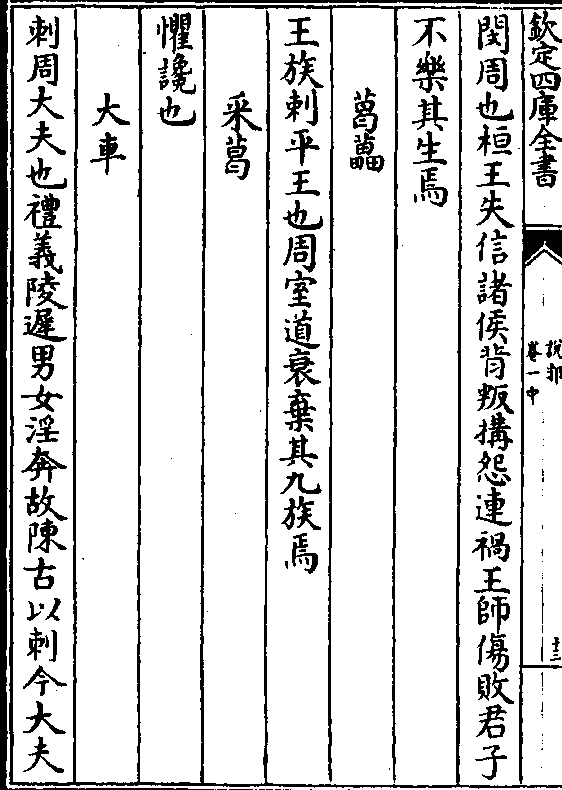 欽定四庫全書
說郛
卷一中
十三
閔周也桓王失信諸侯背叛搆怨連禍王師傷敗君子
不樂其生焉
葛藟
王族刺平王也周室道衰棄其九族焉
采葛
懼讒也
大車
刺周大夫也禮義陵遲男女淫奔故陳古以刺今大夫